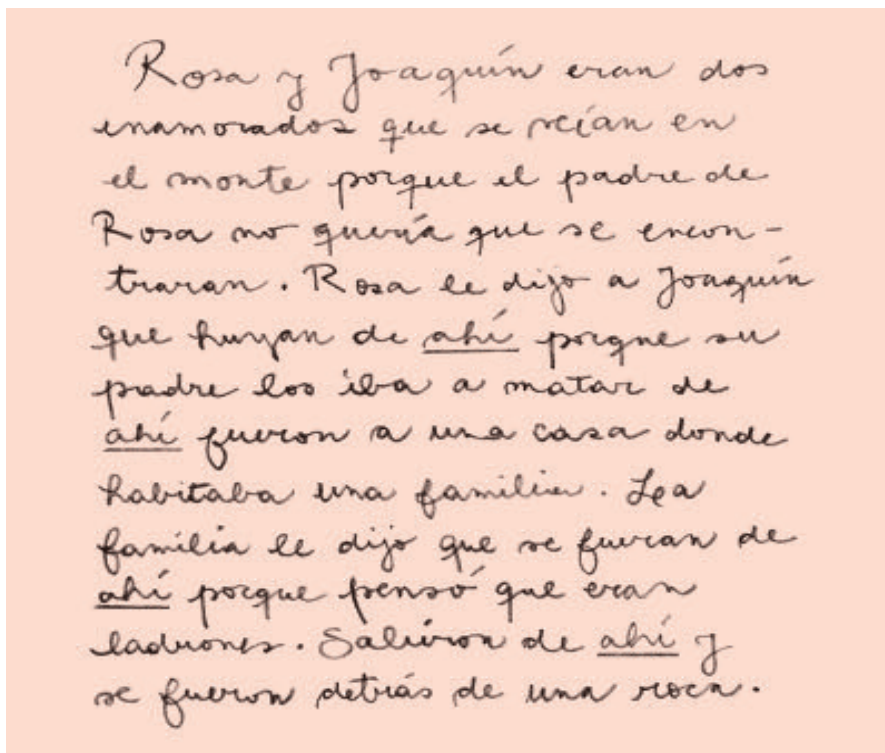 Rosa y Joaquín eran dos
enamorados que se veían en
el monte porque el padre de
Rosa no quería que se encon-
traran. Rosa le dijo a Joaquín
que huyan de ahí porque su
padre los iba a matar de
ahí fueron a una casa donde
habitaba una familia. La
familia le dijo que se fueran de
ahí porque pensó que eran
ladrones. Salieron de ahí y
se fueron detrás de una roca.